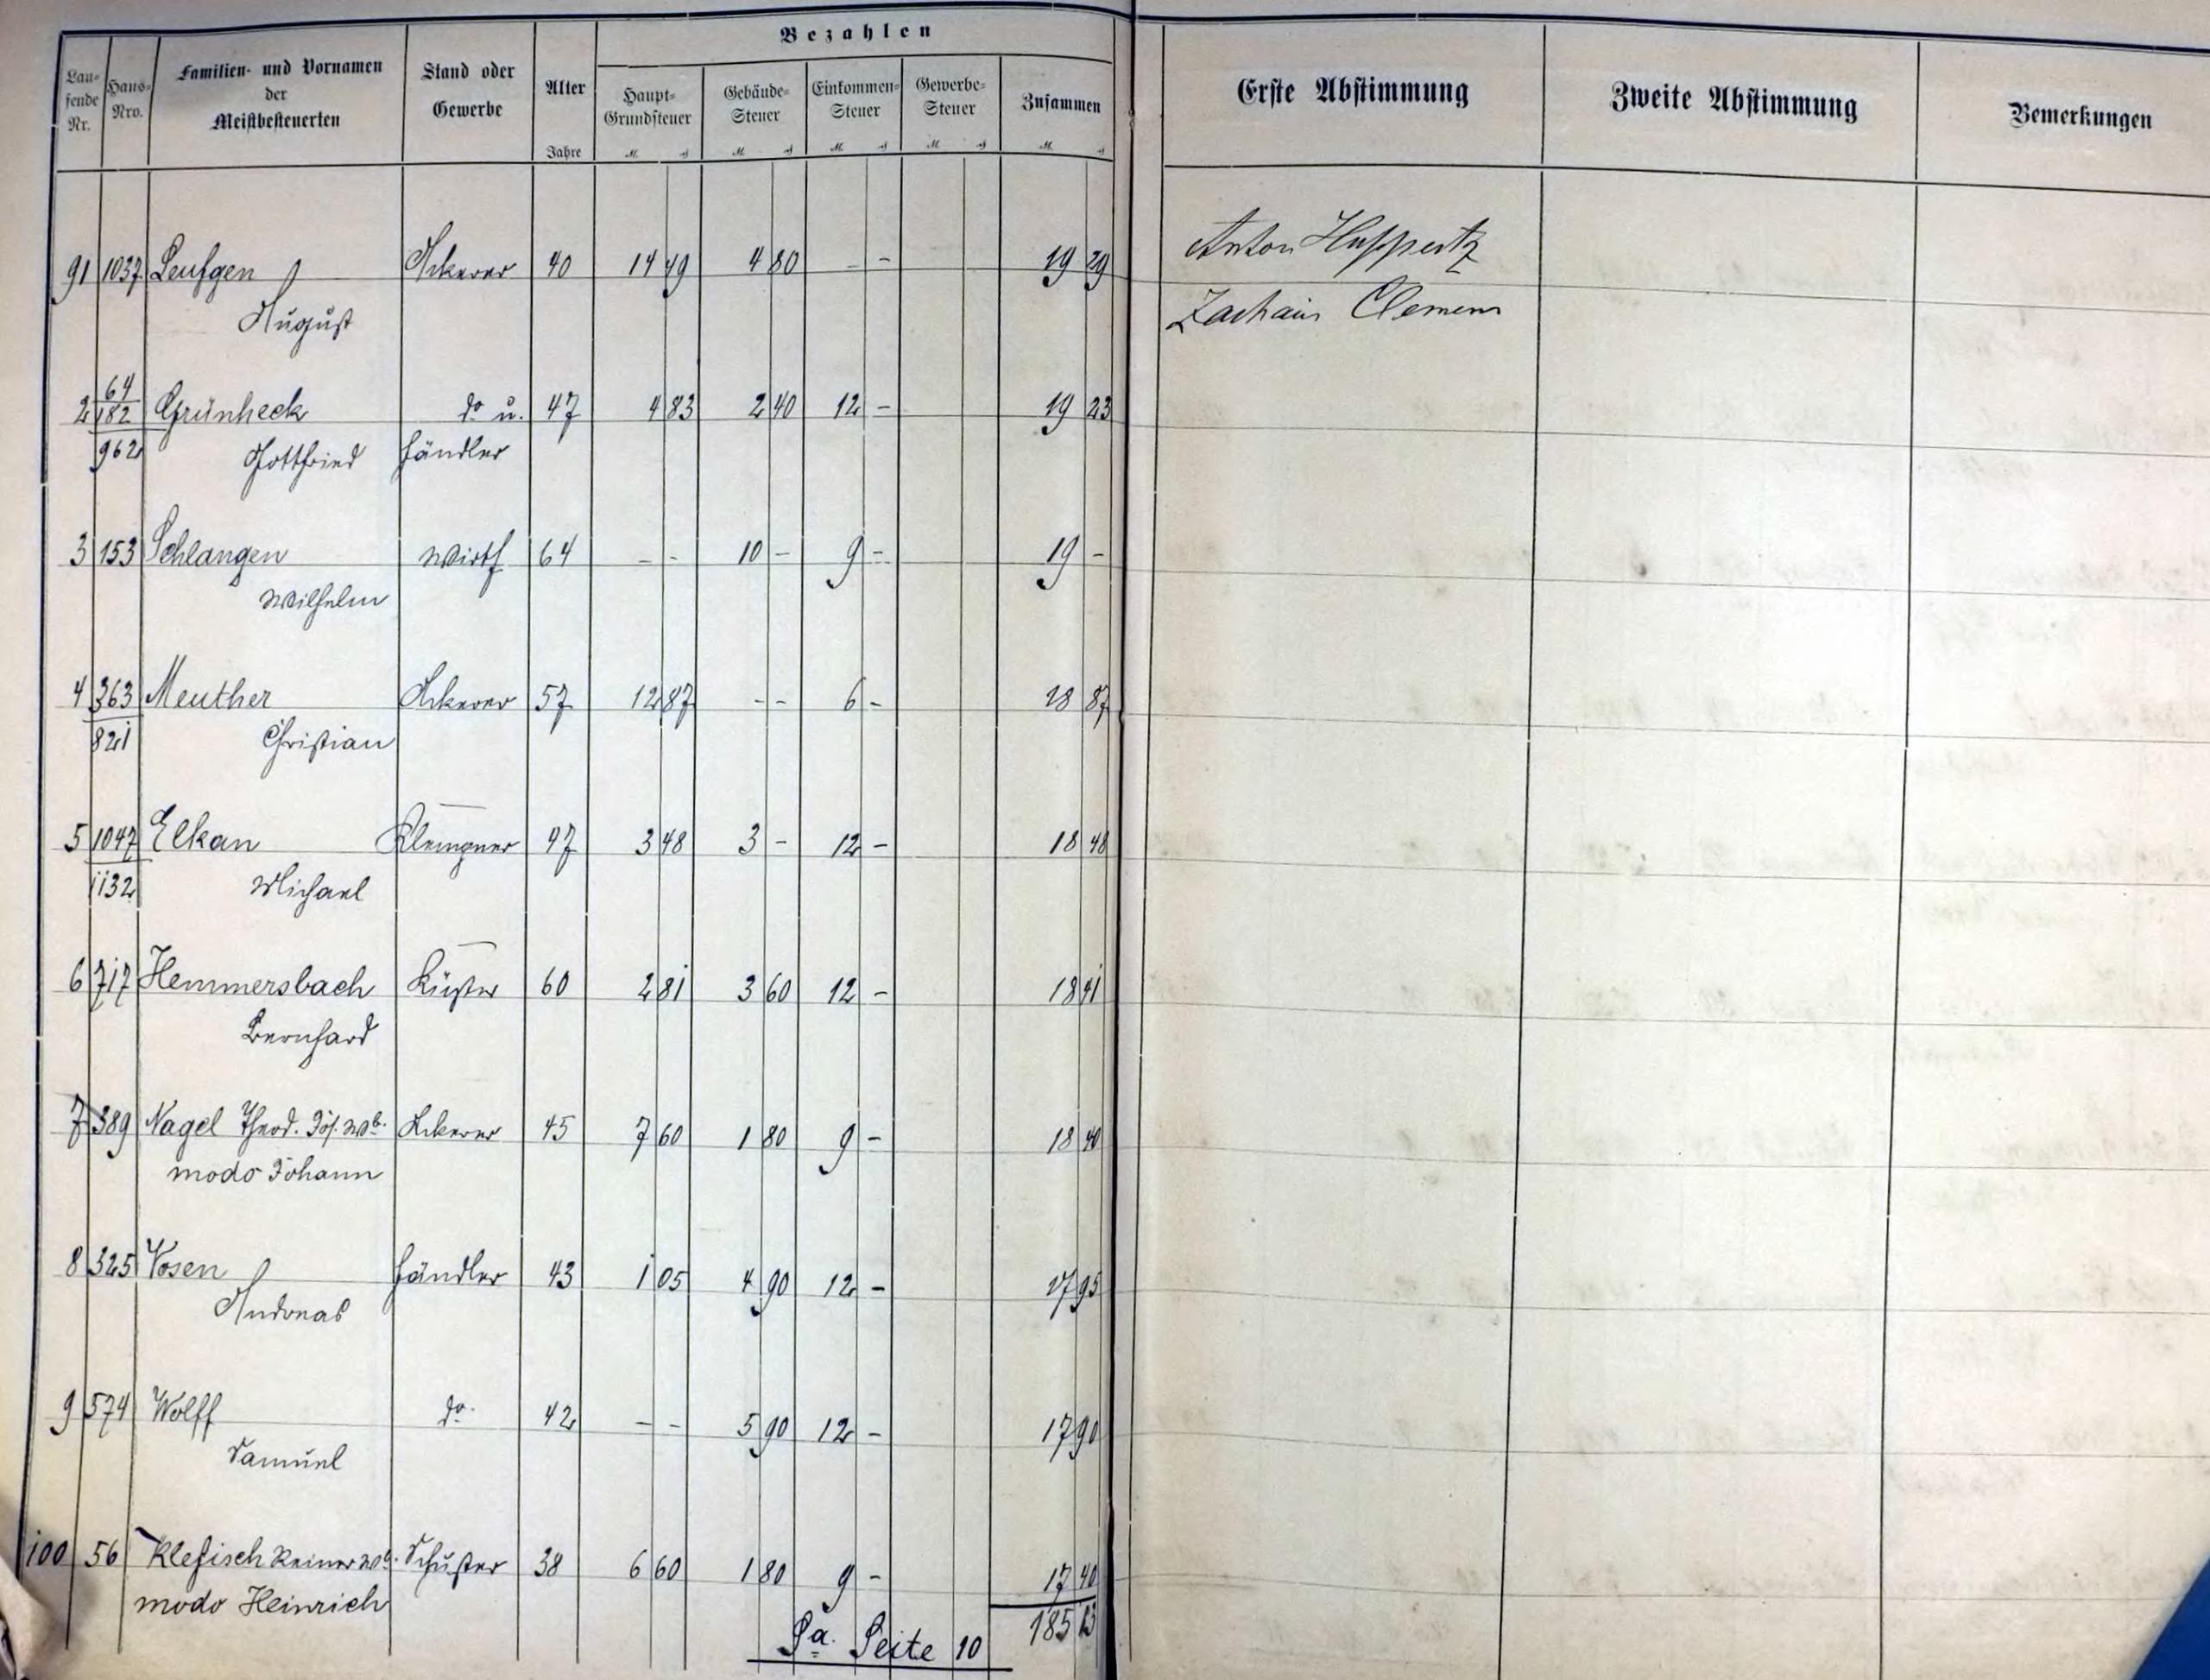 Bezahlen
Laufende Nr. Haus-Nro. Familien- und Vornamen der Meistbesteuerten Stand oder Gewerbe Alter Jahre Haupt-Grundsteuer M. ₰ Gebäude-Steuer M. ₰ Einkommen-Steuer M. ₰ Gewerbe-Steuer M. ₰ Zusammen M. ₰ Erste Abstimmung Zweite Abstimmung Bemerkungen
91 1037 Leufgen Ackerer 40 14 49 4 80 - - 19 29 Anton Huppertz
August Zachaius Clemens
2 64/182 Grünheck do u. 47 4 83 2 40 12 - 19 23
962 Gottfried Händler
3 153 Schlangen Wirth 64 - - 10 - 9 - 19 -
Wilhelm
4 363 Meuther Ackerer 57 12 87 - - 6 - 18 87
821 Christian
5 1047 Elkan Klempner 47 3 48 3 - 12 - 18 48
1132 Michael
6 717 Hemmersbach Küster 60 2 81 3 60 12 - 18 41
Bernhard
7 389 Nagel Theod. Jos. Wb. Ackerer 45 7 60 1 80 9 - 18 40
modo Johann
8 325 Vosen Händler 43 1 05 4 90 12 - 17 95
Andreas
9 574 Wolff do. 42 - - 5 90 12 - 17 90
Samuel
100 56 Klefisch Reiner Wb. Schuster 38 6 60 1 80 9 - 17 40
modo Heinrich
Sa. Seite 10 185